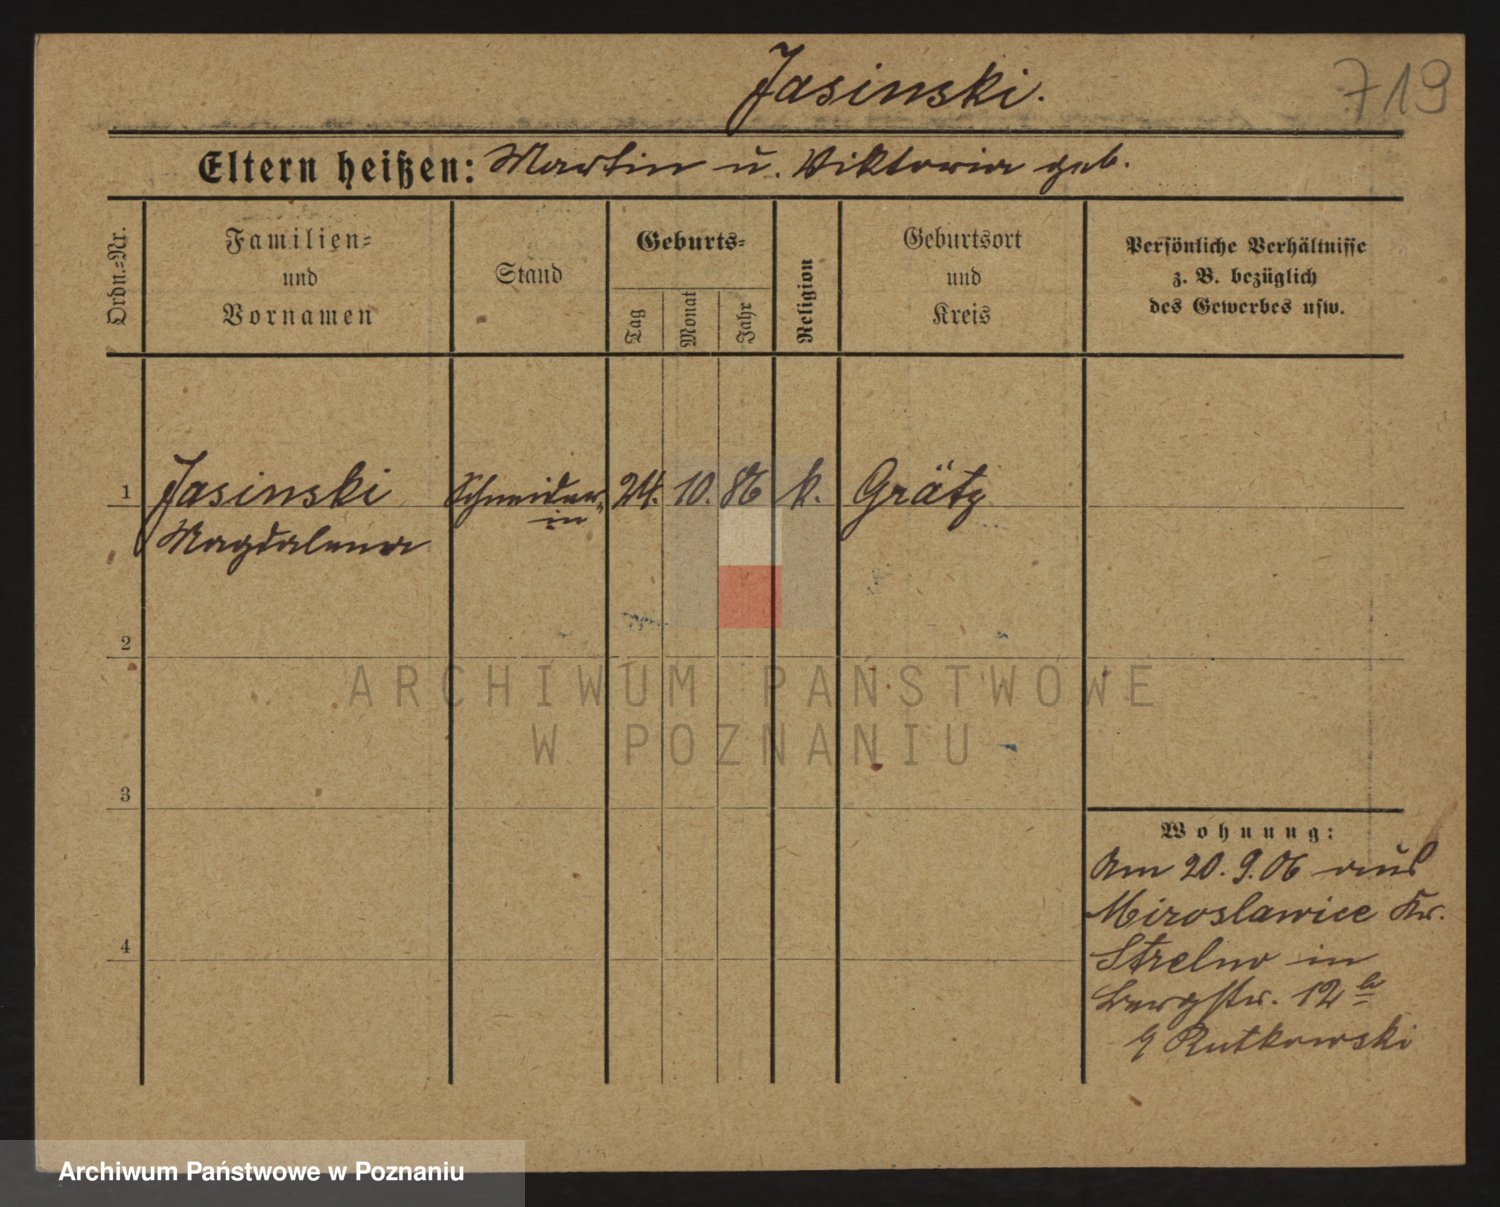 Jasinski.
719
Eltern heißen: Martin u. Viktoria geb.
Ordn.-Nr.
Familien-
und
Vornamen
Stand
Geburts-
Tag
Monat
Jahr
Religion
Geburtsort
und
Kreis
Persönliche Verhältnisse
z. B. bezüglich
des Gewerbes usw.
1 Jasinski Schneider- 24. 10. 86 k. Grätz
in
Magdalena
2
ARCHIWUM PAŃSTWOWE
W POZNANIU
3
Wohnung:
Am 20.9.06 aus
Miroslawice Kr.
4
Strelno in
Bergstr. 12 b
Rutkowski
Archiwum Państwowe w Poznaniu